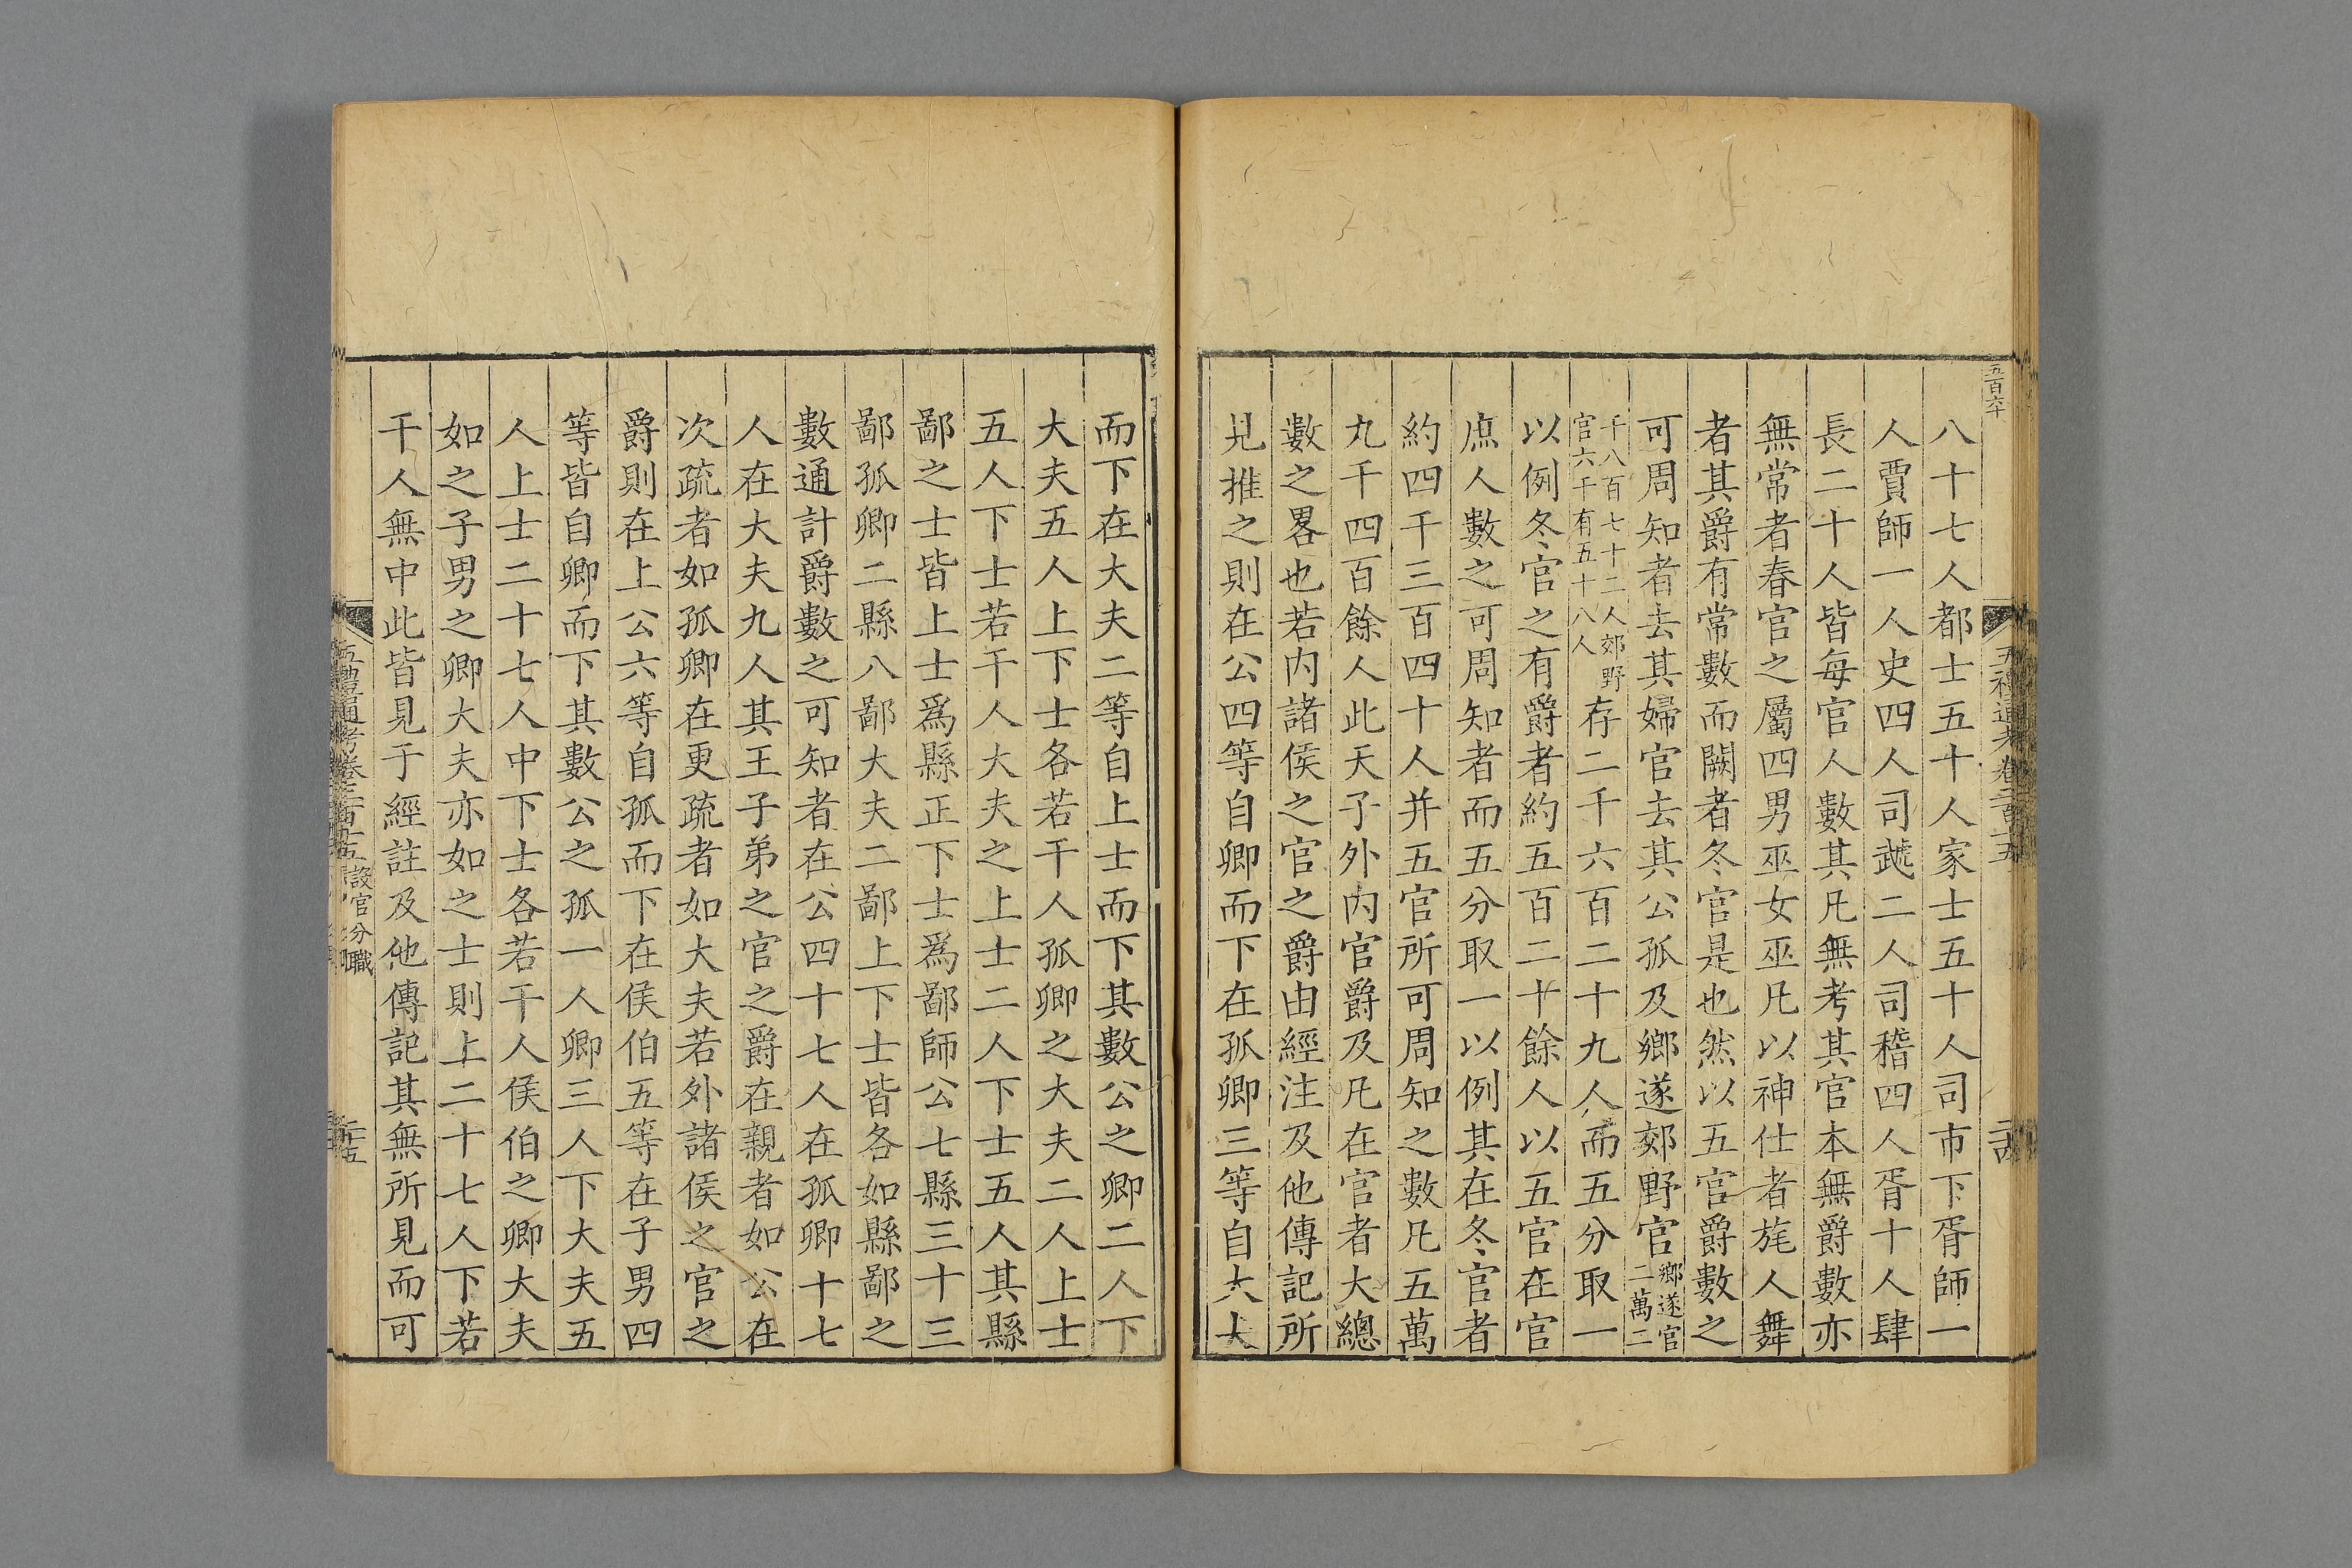 八十七人都士五十人家士五十人司市下胥師一
人賈師一人史四人司虣二人司稽四人胥十人肆
長二十人皆每官人數其凡無考其官本無爵數亦
無常者春官之屬四男巫女巫凡以神仕者旄人舞
者其爵有常數而闕者冬官是也然以五官爵數之
可周知者去其婦官去其公孤及鄉遂郊野官鄉遂官二萬二
千八百七十二人郊野官六千有五十八人存二千六百二十九人而五分取一
以例冬官之有爵者約五百二十餘人以五官在官
庶人數之可周知者而五分取一以例其在冬官者
約四千三百四十人并五官所可周知之數凡五萬
九千四百餘人此天子外內官爵及凡在官者大總
數之畧也若內諸侯之官之爵由經注及他傳記所
見推之則在公四等自卿而下在孤卿三等自大夫
而下在大夫二等自上士而下其數公之卿二人下
大夫五人上下士各若干人孤卿之大夫二人上士
五人下士若干人大夫之上士二人下士五人其縣
鄙之士皆上士爲縣正下士爲鄙師公七縣三十三
鄙孤卿二縣八鄙大夫二鄙上下士皆各如縣鄙之
數通計爵數之可知者在公四十七人在孤卿十七
人在大夫九人其王子弟之官之爵在親者如公在
次疏者如孤卿在更疏者如大夫若外諸侯之官之
爵則在上公六等自孤而下在侯伯五等在子男四
等皆自卿而下其數公之孤一人卿三人下大夫五
人上士二十七人中下士各若干人侯伯之卿大夫
如之子男之卿大夫亦如之士則上二十七人下若
干人無中此皆見于經註及他傳記其無所見而可
五禮通考卷二百十五
設官分職
二十五